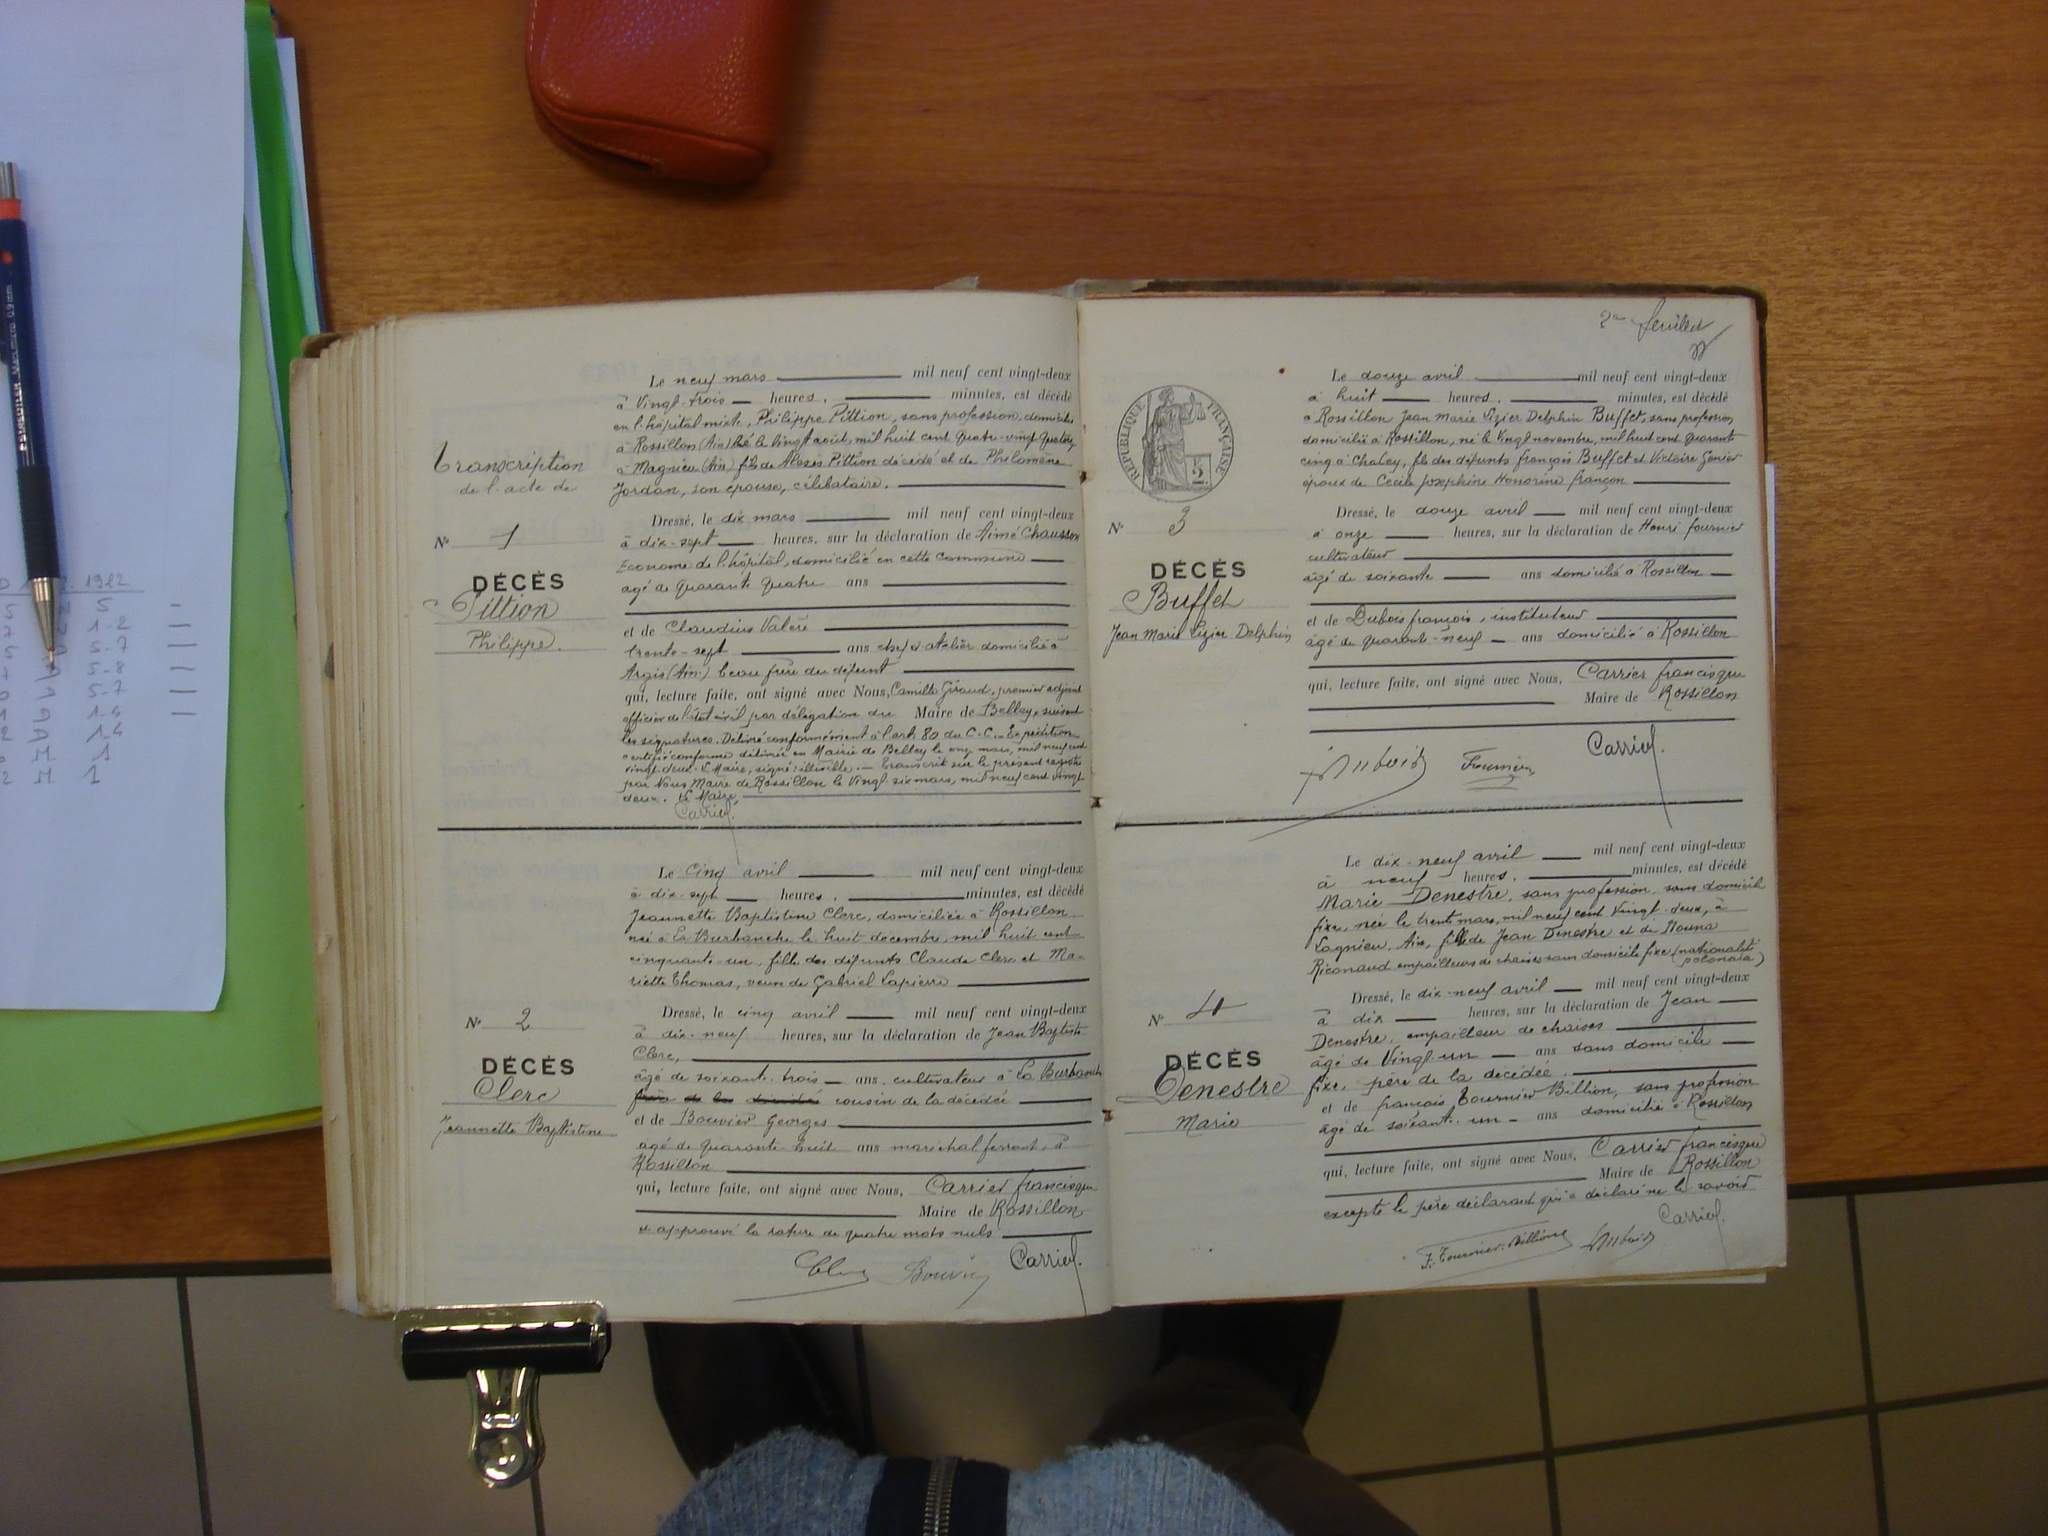 Le neuf mars mil neuf cent vingt-deux
à Vingt-trois heures, minutes, est décédé
en l'hôpital mixte, Philippe Pittion, sans profession, domicilié
à Rossillon (Ain) Né le Vingt août, mil huit cent quatre-vingt quatorze
à Magnieu (Ain) fils de Alexis Pittion décédé et de Philomène
Jordan, son épouse, célibataire.
Transcription
de l'acte de
Dressé, le dix mars mil neuf cent vingt-deux
à dix-sept heures, sur la déclaration de Aimé Chausson
Econome de l'hôpital, domicilié en cette commune
agé de quarante quatre ans
N° 1
DÉCÈS
Pittion
Philippe.
et de Claudius Valère
trente-sept ans chef d'atelier domicilié à
Argis (Ain) beau frère du défunt
qui, lecture faite, ont signé avec Nous, Camille Giraud, premier adjoint
officier de l'état civil par délégation du Maire de Belley, suivent
les signatures. Délivré conformément à l'art. 80 du C.C. Expédition
certifié conforme délivrée en Mairie de Belley le onze mars, mil neuf cent
vingt-deux. Le Maire, signé: illisible. Transcrit sur le présent registre
par Nous Maire de Rossillon le Vingt six mars, mil neuf cent vingt
deux. Le Maire,
Carrier.
Le cinq avril mil neuf cent vingt-deux
à dix-sept heures, minutes, est décédé
Jeannette Baptistine Clerc, domiciliée à Rossillon
née à La Burbanche le huit décembre, mil huit cent
cinquante-un, fille des défunts Claude Clerc et Ma-
riette Thomas, veuve de Gabriel Lapierre
Dressé, le cinq avril mil neuf cent vingt-deux
à dix-neuf heures, sur la déclaration de Jean Baptiste
Clerc,
âgé de soixante-trois ans cultivateur à La Burbanche
cousin de la décédée
N° 2
DÉCÈS
Clerc
Jeannette Baptistine
et de Bouvier Georges
agé de quarante huit ans maréchal ferrant, à
Rossillon
qui, lecture faite, ont signé avec Nous, Carrier francisque
Maire de Rossillon
et approuvé la rature de quatre mots nuls
Clerc Bouvier Carrier.
2me feuillet
Le douze avril mil neuf cent vingt-deux
à huit heures, minutes, est décédé
à Rossillon Jean Marie Lizier Delphin Buffet, sans profession
domicilié à Rossillon, né le Vingt novembre, mil huit cent quarante
cinq à Chaley, fils des défunts françois Buffet et Victoire Genier
époux de Cécile Joséphine Honorine françon
RÉPUBLIQUE FRANÇAISE
Dressé, le douze avril mil neuf cent vingt-deux
à onze heures, sur la déclaration de Henri fournier
cultivateur
âgé de soixante ans domicilié à Rossillon
N° 3
DÉCÈS
Buffet
Jean Marie Lizier Delphin
et de Dubois françois, instituteur
âgé de quarante-neuf ans domicilié à Rossillon
qui, lecture faite, ont signé avec Nous, Carrier francisque
Maire de Rossillon
Dubois Fournier Carrier.
Le dix-neuf avril mil neuf cent vingt-deux
à neuf heures, minutes, est décédé
Marie Denestre, sans profession, sans domicile
fixe, née le trente mars, mil neuf cent Vingt-deux, à
Lagnieu, Ain, fille de Jean Denestre et de Nouna
Riconaud empailleurs de chaises sans domicile fixe (nationalité
polonaise)
Dressé, le dix-neuf avril mil neuf cent vingt-deux
à dix heures, sur la déclaration de Jean
Denestre, empailleur de chaises
âgé de Vingt-un ans sans domicile
fixe, père de la décédée.
N° 4
DÉCÈS
Denestre
Marie
et de françois Tournier Billion, sans profession
âgé de soixante-un ans domicilié à Rossillon
qui, lecture faite, ont signé avec Nous, Carrier francisque
Maire de Rossillon
excepté le père déclarant qui a déclaré ne le savoir
F. Tournier-Billion Dubois Carrier.
1922
5
1-2
5-7
5-8
5-7
1-4
1
1
STAEDTLER
0.9mm